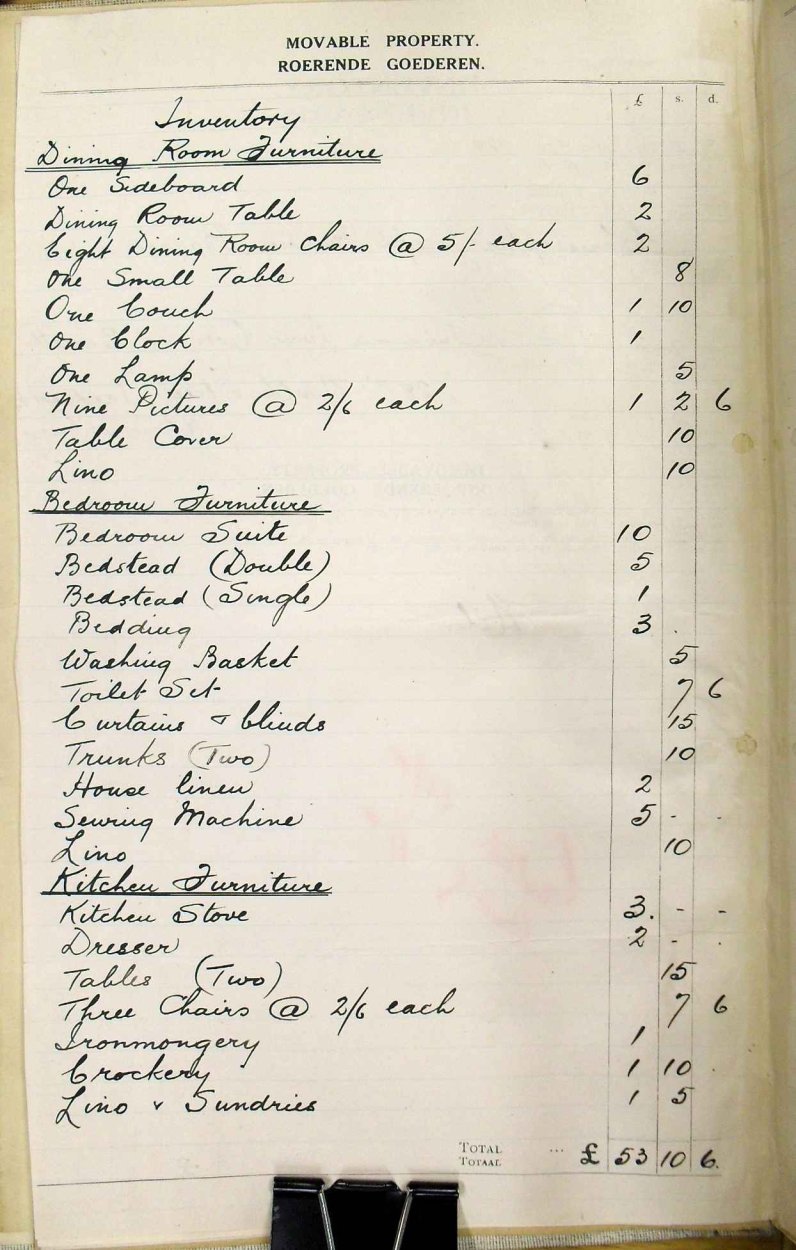 MOVABLE PROPERTY.
ROERENDE GOEDEREN.
£ s. d.
Inventory
Dining Room Furniture
One Sideboard 6
Dining Room Table 2
Eight Dining Room Chairs @ 5/- each 2
One Small Table 8
One Couch 1 10
One Clock 1
One Lamp 5
Nine Pictures @ 2/6 each 1 2 6
Table Cover 10
Lino 10
Bedroom Furniture
Bedroom Suite 10
Bedstead (Double) 5
Bedstead (Single) 1
Bedding 3 .
Washing Basket 5
Toilet Set 7 6
Curtains & blinds 15
Trunks (Two) 10
House linen 2
Sewing Machine 5 - -
Lino 10
Kitchen Furniture
Kitchen Stove 3. - -
Dresser 2 - .
Tables (Two) 15
Three Chairs @ 2/6 each 7 6
Ironmongery 1
Crockery 1 10
Lino & Sundries 1 5
TOTAL ... £ 53 10 6.
TOTAAL